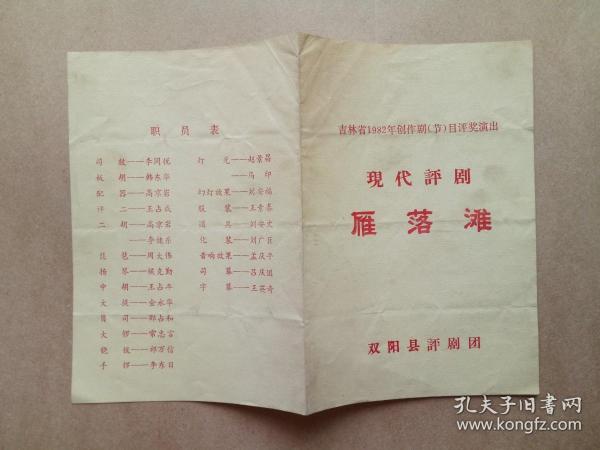 职员表
司鼓——李同优
板胡——韩东华
配器——高京岩
评二——王占成
二胡——高京岩
——李继乐
琵琶——周大伟
扬琴——候克勤
中胡——王占平
大提——金永华
笛司——郑占和
大锣——常志言
铙钹——祁万信
手锣——李东日
灯光——赵景昌
——马印
幻灯效果——刘安福
服装——王素春
道具——刘安文
化装——刘广臣
音响效果——孟庆平
司幕——吕庆国
字幕——王英奇
吉林省1982年创作剧(节)目评奖演出
現代評剧
雁落滩
双阳县評剧团
孔夫子旧书网
www.kongfz.com